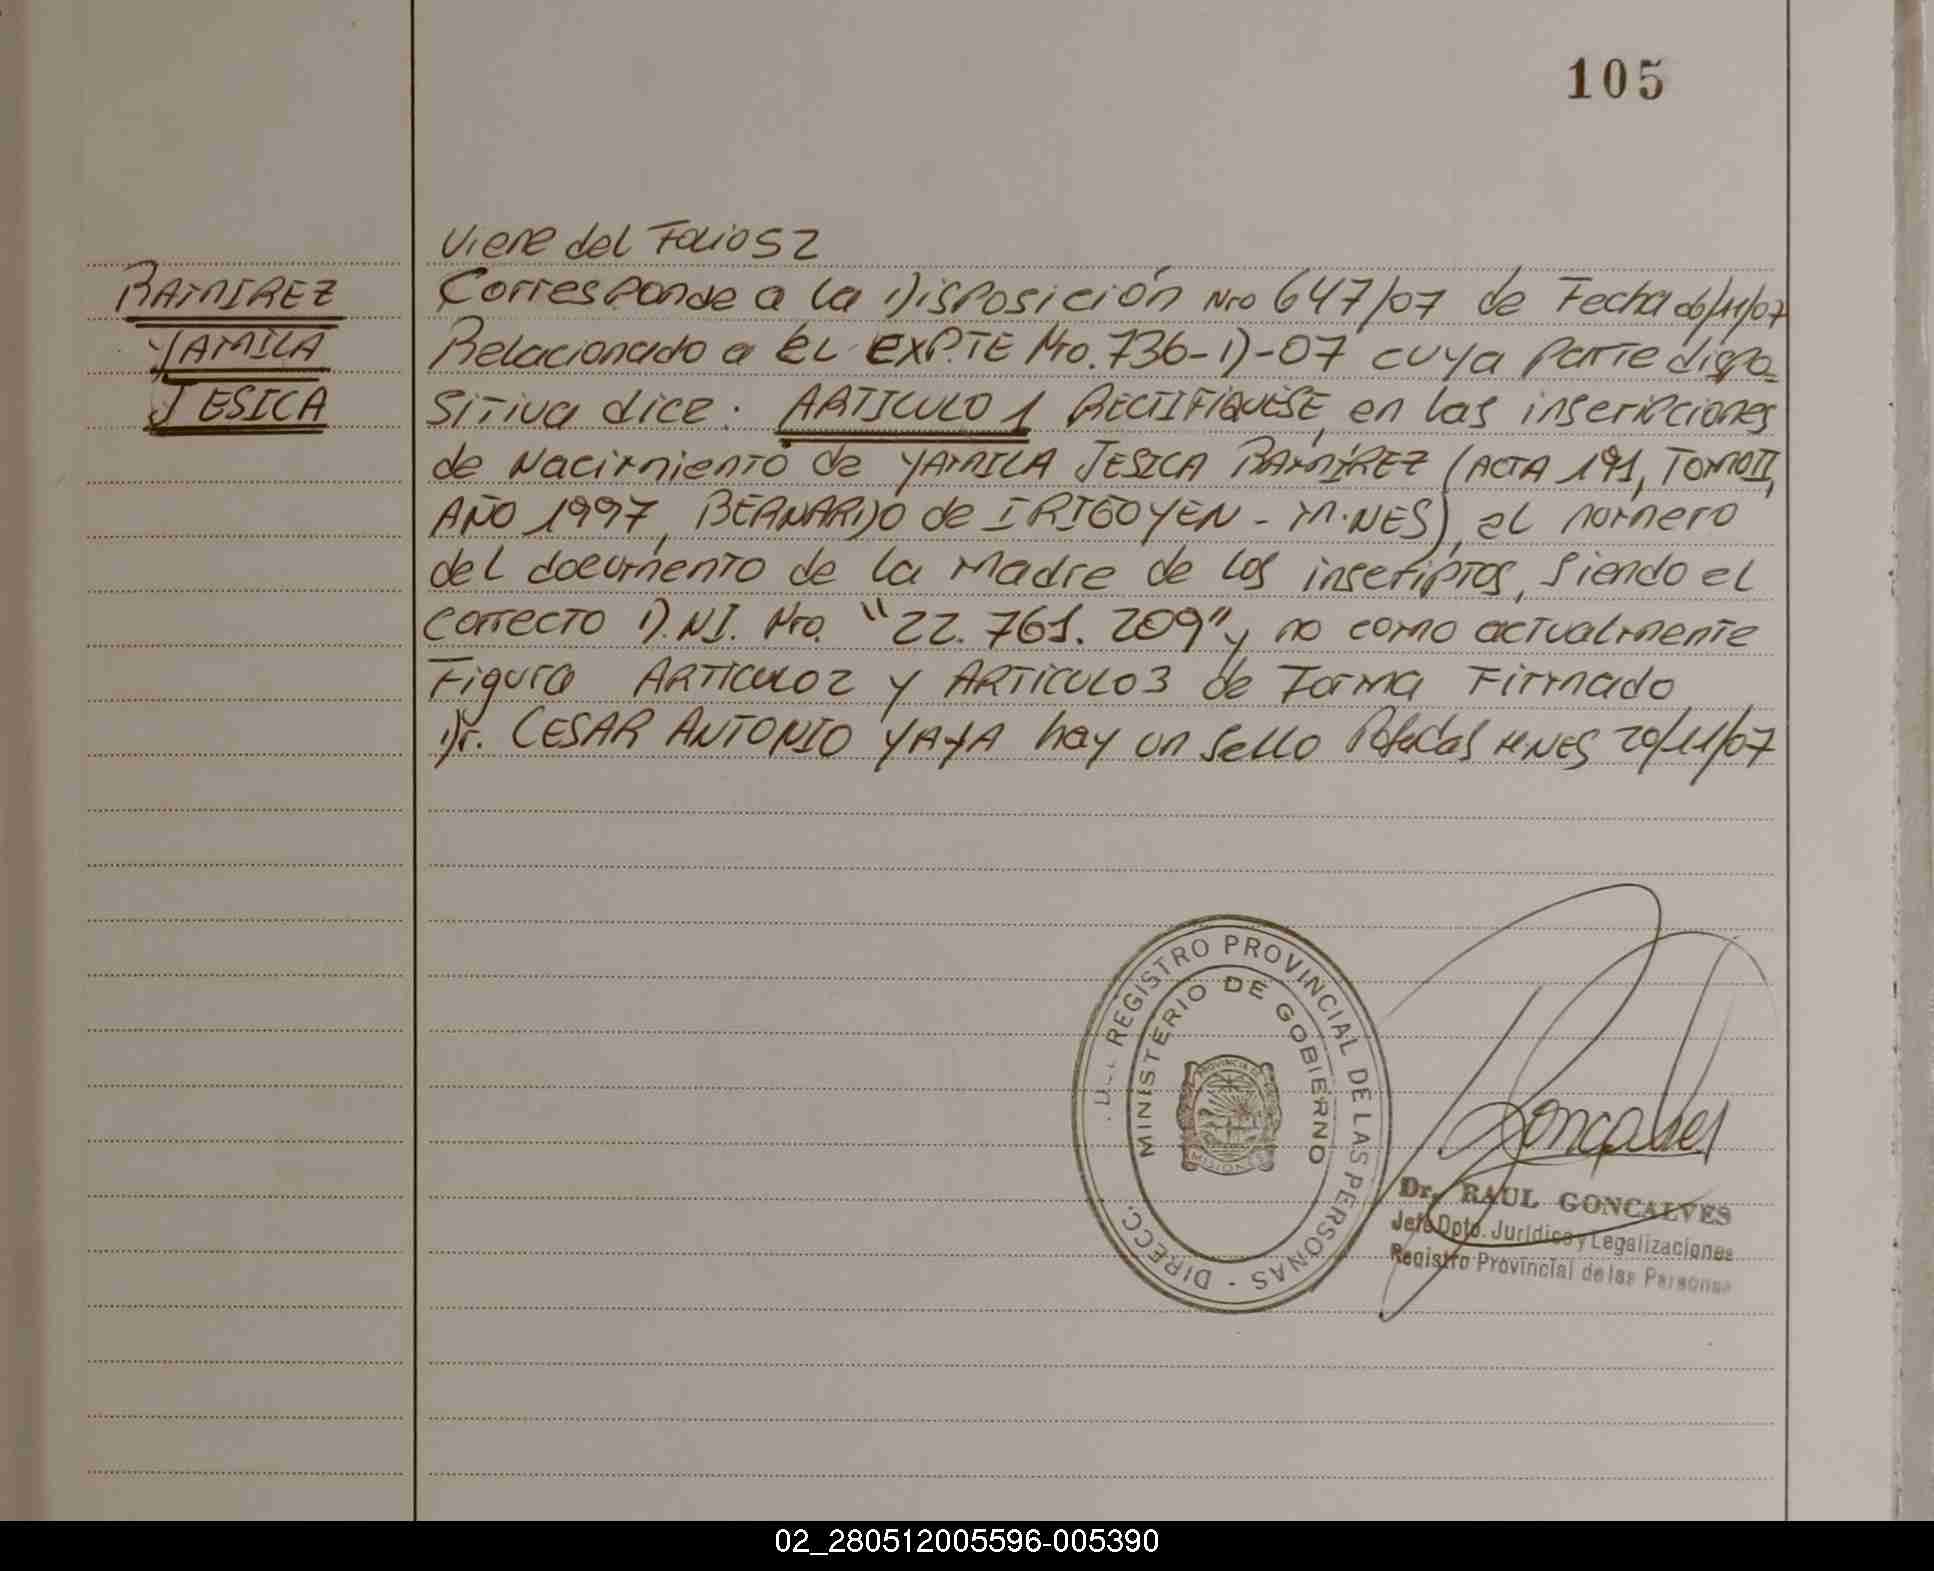 105
Viene del Folio 52
RAMIREZ
YAMILA
JESICA
Corresponde a la Disposición Nro 647/07 de Fecha 06/11/07
Relacionado a él EXPTE Nro. 736-D-07 cuya parte dispo-
sitiva dice: ARTICULO 1 RECTIFIQUESE, en las inscripciones
de Nacimiento de YAMILA JESICA RAMÍREZ (ACTA 191, TOMO II,
AÑO 1997, BERNARDO de IRIGOYEN - M.NES), el número
del documento de la Madre de los inscriptos, siendo el
correcto D.NI. Nro. "22.761.209" y no como actualmente
Figura ARTICULO 2 y ARTICULO 3 de Forma Firmado
Dr. CESAR ANTONIO YAYA hay un sello Posadas MNES 20/11/07
DIRECC. DEL REGISTRO PROVINCIAL DE LAS PERSONAS -
MINISTERIO DE GOBIERNO
PROVINCIA DE
MISIONES
Goncalves
Dr. RAUL GONCALVES
Jefe Dpto. Jurídico y Legalizaciones
Registro Provincial de las Personas
02_280512005596-005390